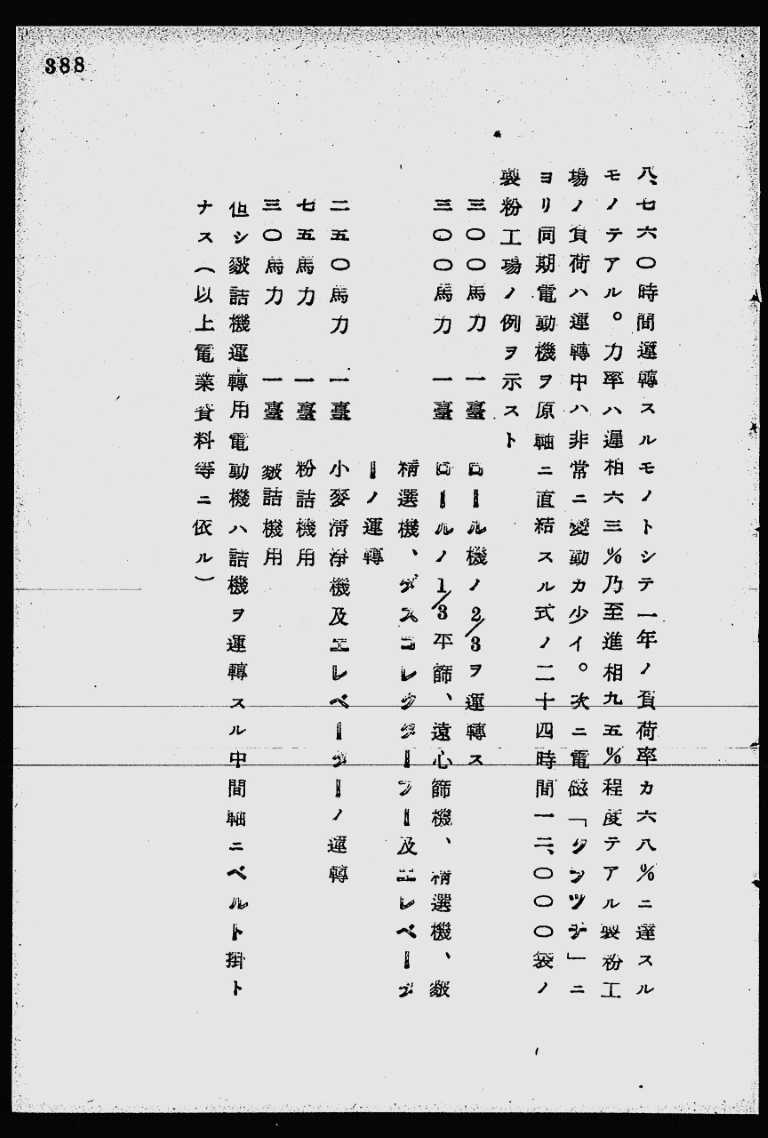 388
八、七六〇時間運轉スルモノトシテ一年ノ負荷率カ六八％ニ達スル
モノテアル。力率ハ遲相六三％乃至進相九五％程度テアル製粉工
場ノ負荷ハ運轉中ハ非常ニ變動カ少イ。次ニ電磁「クラツチ」ニ
ヨリ同期電動機ヲ原軸ニ直結スル式ノ二十四時間一二、〇〇〇袋ノ
製粉工場ノ例ヲ示スト
三〇〇馬力　一臺　ロール機ノ2/3ヲ運轉ス
三〇〇馬力　一臺　ロールノ1/3平篩、遠心篩機、精選機、麩
精選機、ダスコレクターフー及エレベータ
ーノ運轉
二五〇馬力　一臺　小麥淸淨機及エレベーターノ運轉
七五馬力　一臺　粉詰機用
三〇馬力　一臺　麩詰機用
但シ麩詰機運轉用電動機ハ詰機ヲ運轉スル中間軸ニベルト掛ト
ナス（以上電業資料等ニ依ル）